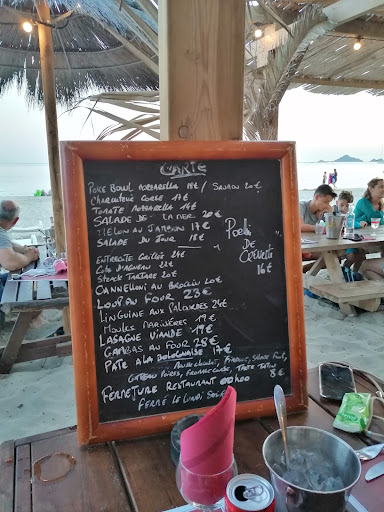 CARTE
POKE BOWL MOZZARELLA 18€ / SAUMON 20€
CHARCUTERIE CORSE 17€
TOMATE MOZZARELLA 17€
SALADE DE LA MER 20€
MELON AU JAMBON 17€
SALADE DU JOUR 18€
POELÉE DE CREVETTE 16€
ENTRECOTE GRILLÉE 24€
COTE D'AGNEAU 22€
STEACK TARTARE 20€
CANNELLONI AU BROCCIU 20€
LOUP AU FOUR 23€
LINGUINE AUX PALOURDES 24€
MOULES MARINIÈRES 19€
LASAGNE VIANDE 19€
GAMBAS AU FOUR 28€
PATE A LA BOLOGNAISE 17€
TARTE TATIN 8€
FERMETURE RESTAURANT
FERMÉ LE LUNDI SOIR